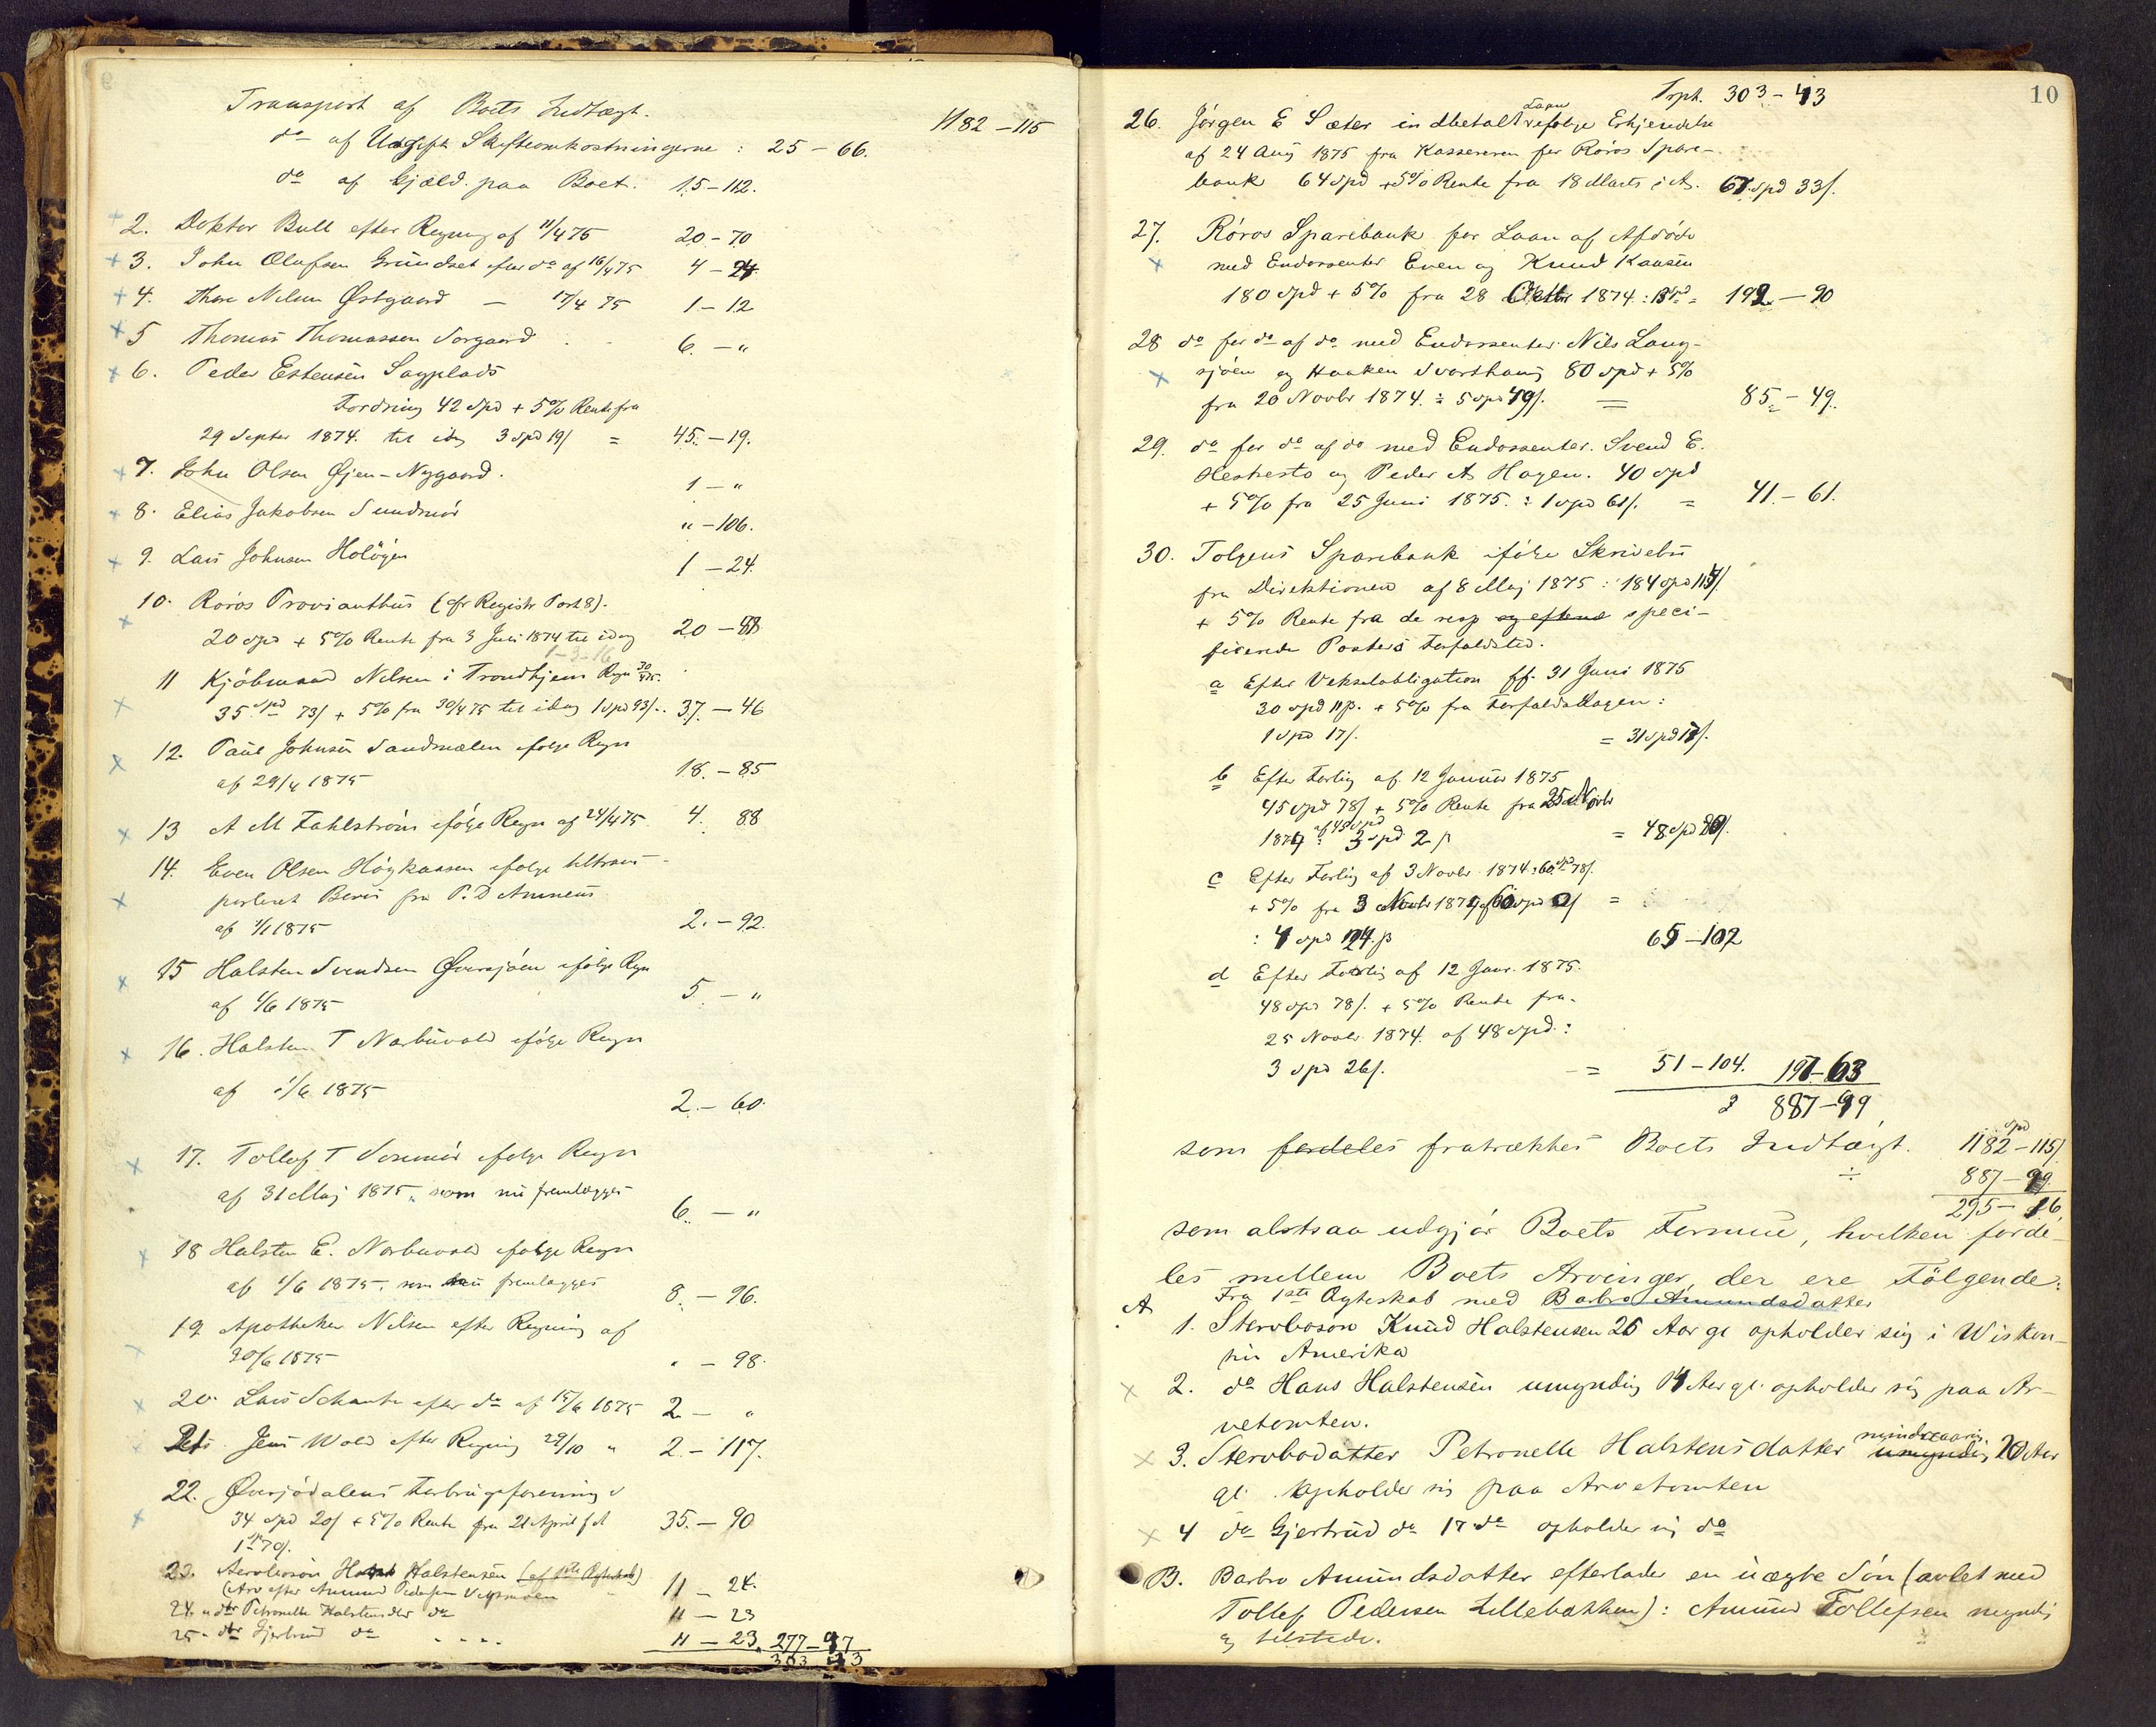 Transport af Boets Indtægt. 1182 - 115
do af Udgift Skifteomkostningerne : 25 - 66.
do af Gjæld paa Boet. 15 - 112.
2. Doktor Bull efter Regning af 11/4 75 20 - 70
3. John Olufsen Gründset efter do af 16/4 75 4 - 24
4. Thore Nilsen Østgaard — 17/4 75 1 - 12
5 Thomas Thomassen Sorgaard 6. - "
6. Peder Estensen Sagplads
Fordring 42 Spd + 5% Rente fra
29 Septbr 1874. til idag 3 Spd 19/ = 45. - 19.
7. John Olsen Øjen-Nygaard. 1 - "
8. Elias Jakobsen Sundmör " - 106.
9. Lars Johnsen Holöyen 1 - 24.
10. Roros Provianthus (cfr Registr Post 8).
20 Spd + 5% Rente fra 3 Juni 1874 til idag 20 - 88
1-3-16
11 Kjöbmand Nilsen i Trondhjem Regn 30/4 75.
35 Spd 73/ + 5% fra 30/4 75 til idag 1 Spd 93/. 37. - 46
12. Paul Johnsen Sandmælen ifølge Regn
af 29/4 1875 18. - 85
13 A M Fahlström ifølge Regn af 24/4 75 4. 88
14. Even Olsen Högkaasen ifølge tiltrans-
porteret Bevis fra P. D Amneus
af 1/1 1875 2. - 92.
15 Halsten Svendsen Øversjöen ifølge Regn
af 1/6 1875 5. - "
16. Halsten T Narbuvold ifølge Regn
af 1/6 1875 2. - 60.
17. Tollef T ifølge Regn
af 31 Maj 1875, som nu fremlægges 6. - "
18 Halsten E. Narbuvold ifølge Regn
af 1/6 1875, som nu fremlægges 8. - 96.
19 Apotheker Nilsen efter Regning af
20/6 1875 " - 98.
20. Lars Schanke efter do af 15/6 1875 2 - "
Jens Wold efter Regning 29/10 " 2 - 117.
22. Øversjödalens Forbrugsforening
34 Spd 20/ + 5% Rente fra 21 April f A 35. - 90
1 Spd 70/.
23. Halstensen (af 1ste Ægteskab) 11 - 24.
(Arv efter Amund Pedersen
24. " dtr Petronelle Halstensdtr do 11 - 23
25 " dtr Gjertrud do . . . . 11 - 23. 277 - 97
303 - 43
10
Trpt. 303 - 43
26. Jörgen E Sæter indbetalt Laan ifølge Erkjendelse
af 24 Aug 1875 fra Kassereren for Röros Spare-
bank 64 Spd + 5% Rente fra 18 Marts i A. 67 Spd 33/.
27. Röros Sparebank for Laan af Afdöde
med Endossenter Even og Knud Kaasen
180 Spd + 5% fra 28 Octbr 1874 : = 192 - 90
28 do for do af do med Endossenter Nils Lang-
sjöen og Haaken Svarthaug 80 Spd + 5%
fra 20 Novbr 1874. : 5 Spd 49/. = 85. - 49.
29. do for do af do med Endossenter. Svend E.
Hestesto og Peder A Hagen. 40 Spd
+ 5% fra 25 Juni 1875. : 1 Spd 61/. = 41. - 61.
30. Tolgens Sparebank ifölge Skrivelse
fra Direktionen af 8 Maj 1875 : 184 Spd
+ 5% Rente fra de resp og speci-
ficerede Posters Forfaldstid.
a Efter Vekselobligation ff. 31 Juni 1875
30 Spd + 5% fra Forfaldsdagen:
1 Spd 17/. = 31 Spd
b Efter Forlig af 12 Januar 1875
45 Spd 78/ + 5% Rente fra 25 Novbr
1874 af 45 Spd : 3 Spd 2 = 48 Spd 80/.
c Efter Forlig af 3 Novbr 1874 : 60 Spd 78/.
+ 5% fra 3 Novbr 1874 af 60 Spd =
: 4 Spd 65 - 102
d Efter Forlig af 12 Janr. 1875.
48 Spd 78/. + 5% Rente fra
25 Novbr 1874 af 48 Spd :
3 Spd 26/. = 51 - 104. 197 - 63
887 - 99
som fordeles fratrækkes Boets Indtægt. 1182 Spd - 115/
÷ 887 - 99.
295 - 16
som altsaa udgjör Boets Formue, hvilken forde-
les mellem Boets Arvinger, der ere Fölgende:
A Fra 1ste Ægteskab med Barbro Amundsdatter
1. Stervboson Knud Halstensen 26 Aar gl opholder sig i Wiskon-
sin Amerika
2. do Hans Halstensen umyndig Aar gl. opholder sig paa Ar-
vetomten.
3. Stervbodatter Petronelle Halstensdatter umyndig mindreaarig 20 Aar
gl. opholder sig paa Arvetomten
4 do Gjertrud do 17 do opholder sig do
B. Barbro Amundsdatter efterlader en uægte Sön (avlet med
Tollef Pedersen Lillebakken): Amund Tollefsen myndig
og tilstede.